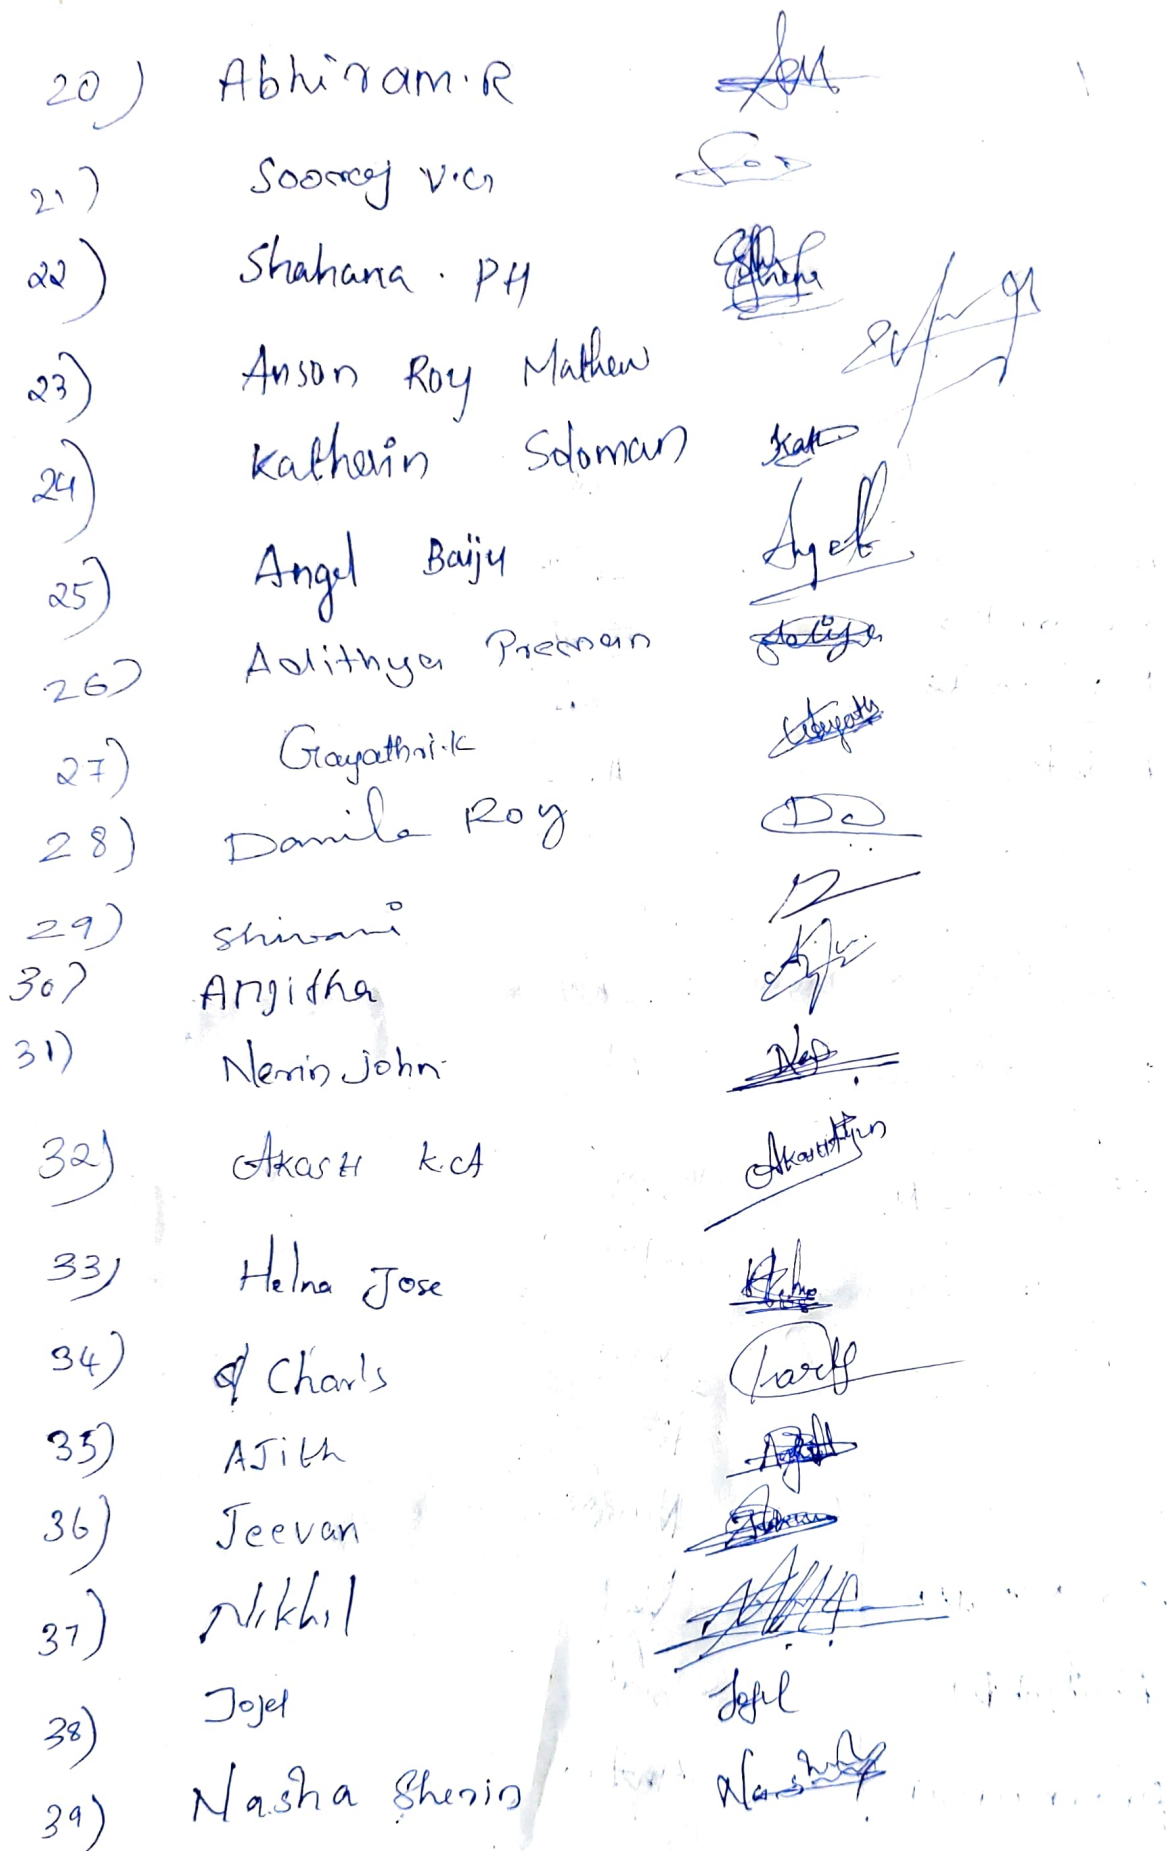 20) Abhiram.R
21) Sooraj V.G
22) Shahana . PH
23) Anson Roy Mathew
24) Katherin Soloman Kath
25) Angel Baiju Angel
26) Adithya Preman
27) Gayathri.K Gayathri
28) Danila Roy Da
29) Shivani
30) Angitha
31) Nerin john
32) AKASH K.A
33) Helna Jose
34) Charls
35) AJith
36) Jeevan
37) Nikhil
38) Jojel Jojel
39) Nasha Sherin